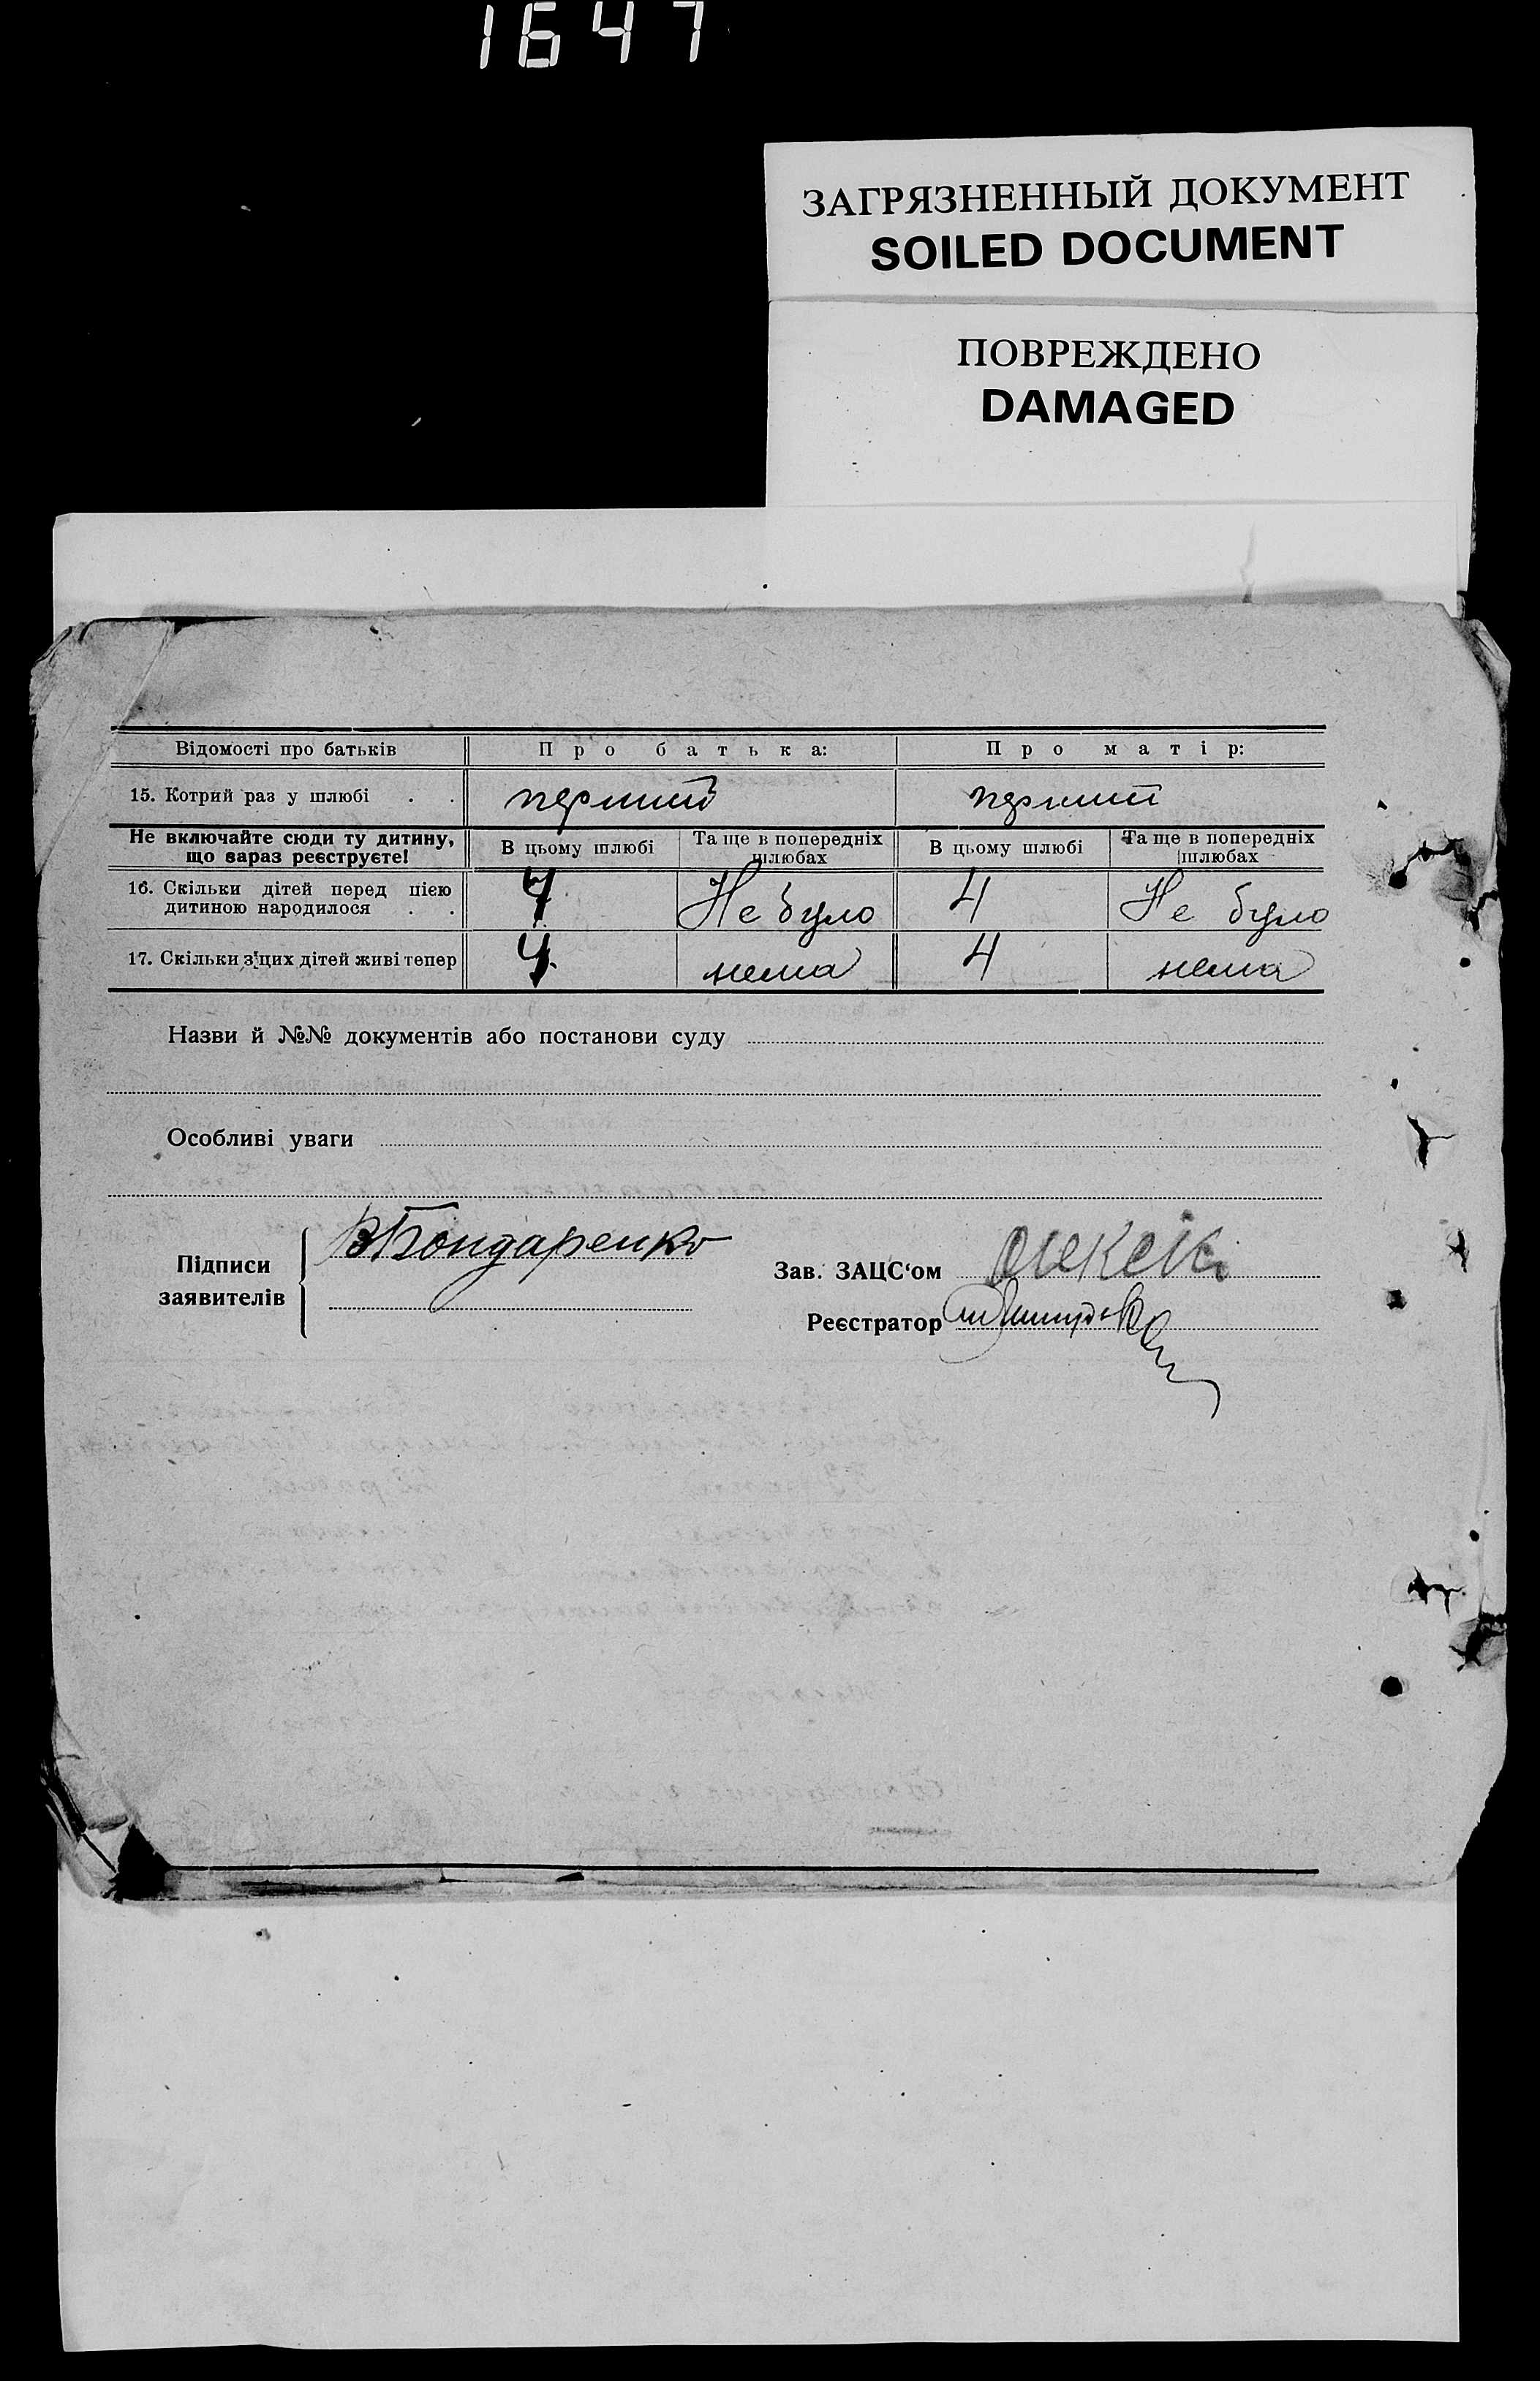 1647
ЗАГРЯЗНЕННЫЙ ДОКУМЕНТ
SOILED DOCUMENT
ПОВРЕЖДЕНО
DAMAGED
Відомості про батьків Про батька: Про матір:
15. Котрий раз у шлюбі . . перший перший
Не включайте сюди ту дитину, що вараз реєструєте! В цьому шлюбі Та ще в попередніх шлюбах В цьому шлюбі Та ще в попередніх шлюбах
16. Скільки дітей перед цією дитиною народилося . . 4 Не було 4 Не було
17. Скільки з цих дітей живі тепер 4 нема 4 нема
Назви й №№ документів або постанови суду
Особливі уваги
Підписи заявителів ВБондаренко
Зав. ЗАЦС‘ом
Реєстратор